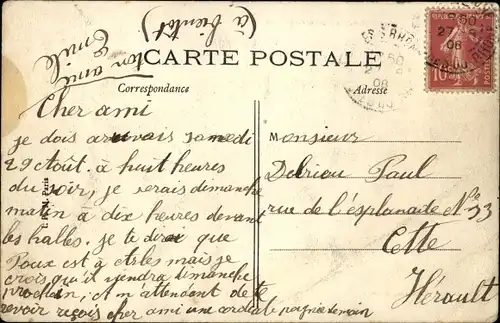 (à bientot)
ton ami
Emile
CARTE POSTALE
Correspondance
Adresse
Cher ami
je dois arrivais samedi
29 Août. à huit heures
du soir, je serais dimanche
matin à dix heures devant
les halles. je te dirai que
Poux est à Arles mais je
crois qu'il viendra dimanche
prochain, et m'attendant de te
revoir reçois cher ami une cordiale poignée de main
Monsieur
Delrieu Paul
rue de l'esplanade N° 33
Cette
Hérault
10
08